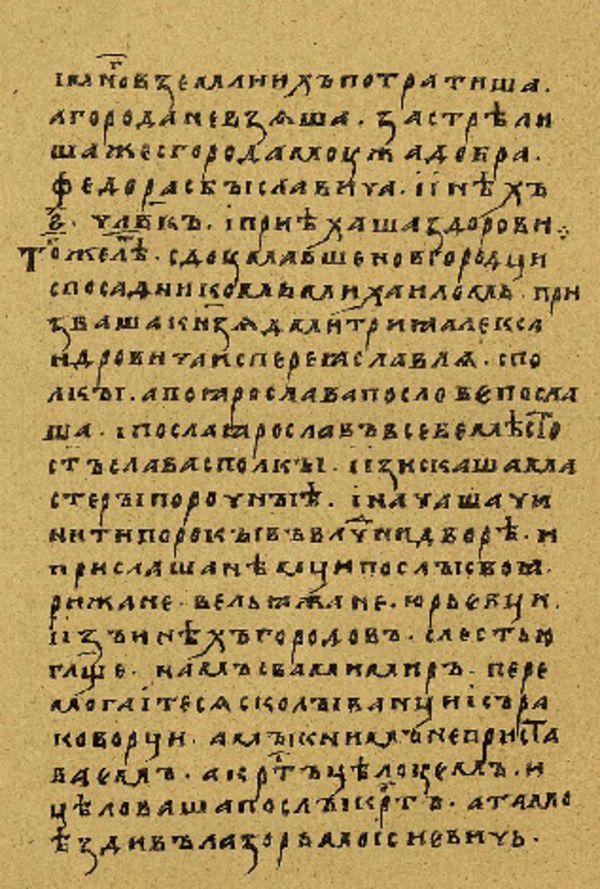 іманѡвъ землиихъпотратиша.
агороданевзѧша. застрѣли
шажесгородамоужадобра.
федорасбыславича. ііинѣхъ
.в҃. ч҃лвкъ. іприѣхашаздорови
Тогожелѣ. сдоумавшеновгородци
спосадникомьмихаиломь. при
зъвашакнѧзѧдмитриꙗалекса
ндровичаиспереꙗславлѧ. спо
лкы. апоꙗрославапословепосла
ша. іпослаꙗрославъвсебемѣсто
стъславасполкы. ііізискашама
стерыпорочныѣ. іначашачи
нитипорокывъвлⷣчнидворѣ. и
прислашанѣмципослысвоꙗ.
рижане. вельꙗжане. юрьевци.
ііізъинѣхъгородовъ. слестью
гл҃ще. намъсвамимиръ. пере
могаітесѧсколыванциісъра
коворци. амыкнимънепристa
ваемъ. акрⷭ҇тъцѣлоуемъ. и
цѣловашапослыікрⷭ҇тъ. атамо
ѣздивълазорьмоісиевичь.